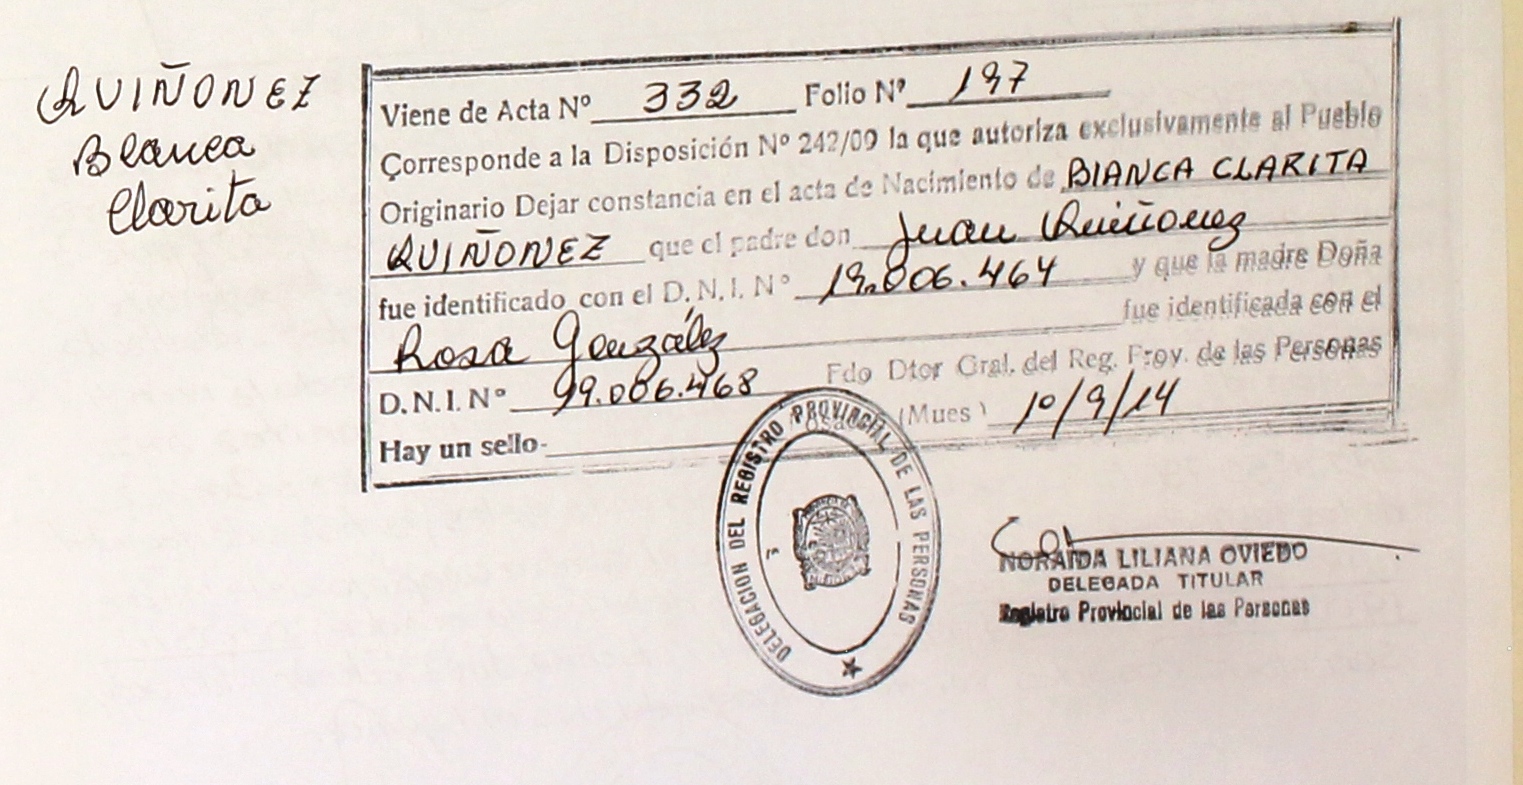 QUIÑONEZ
Blanca
Clarita
Viene de Acta Nº 332 Folio Nº 197
Corresponde a la Disposición Nº 242/09 la que autoriza exclusivamente al Pueblo
Originario Dejar constancia en el acta de Nacimiento de BIANCA CLARITA
QUIÑONEZ que el padre don Juan Quiñonez
fue identificado con el D.N.I. Nº 19.006.464 y que la madre Doña
Rosa González fue identificada con el
D.N.I. Nº 99.006.468 Fdo Dtor Gral. del Reg. Prov. de las Personas
Hay un sello- Posadas (Mnes) 10/9/14
DELEGACION DEL REGISTRO PROVINCIAL DE LAS PERSONAS
NORAIDA LILIANA OVIEDO
DELEGADA TITULAR
Registro Provincial de las Personas